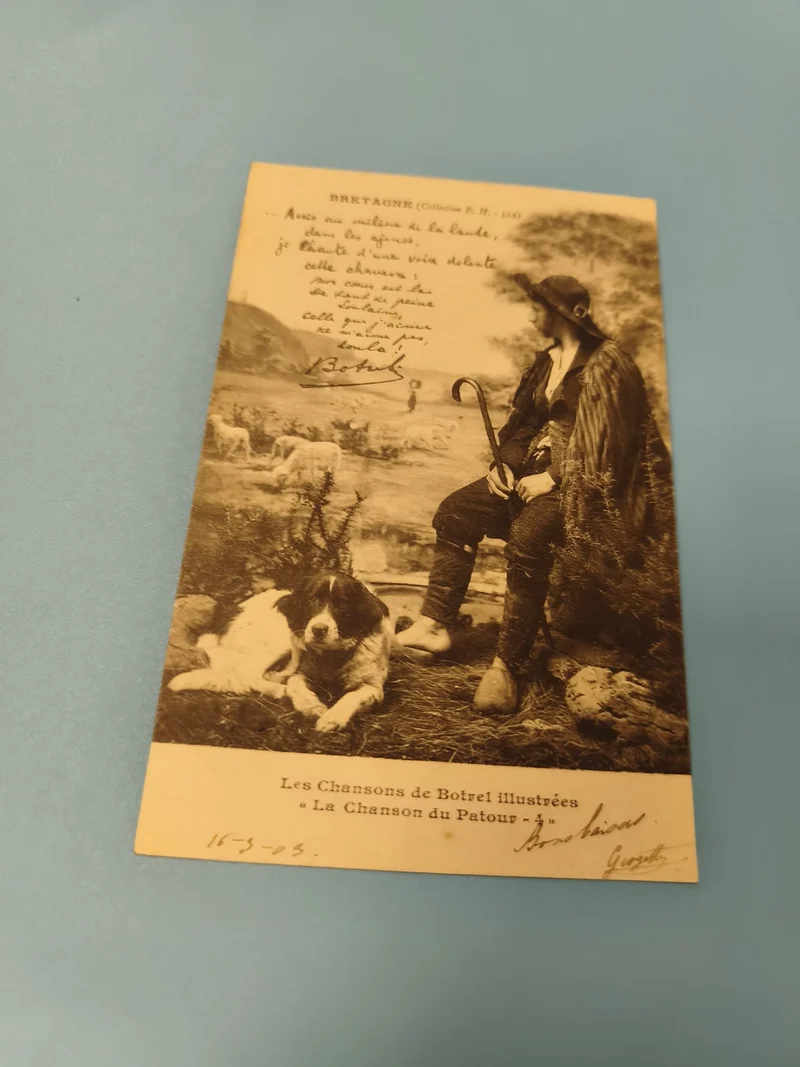 BRETAGNE (Collection E. H. -
... Assis au milieu de la lande,
dans les ajoncs,
je chante d'une voix dolente
cette chanson :
mon cœur est las
De tant de peine
Loulaine,
Celle que j'aime
ne m'aime pas,
Loula !
Botrel
Les Chansons de Botrel illustrées
« La Chanson du Patour - 4 »
Bons baisers.
16-3-03.